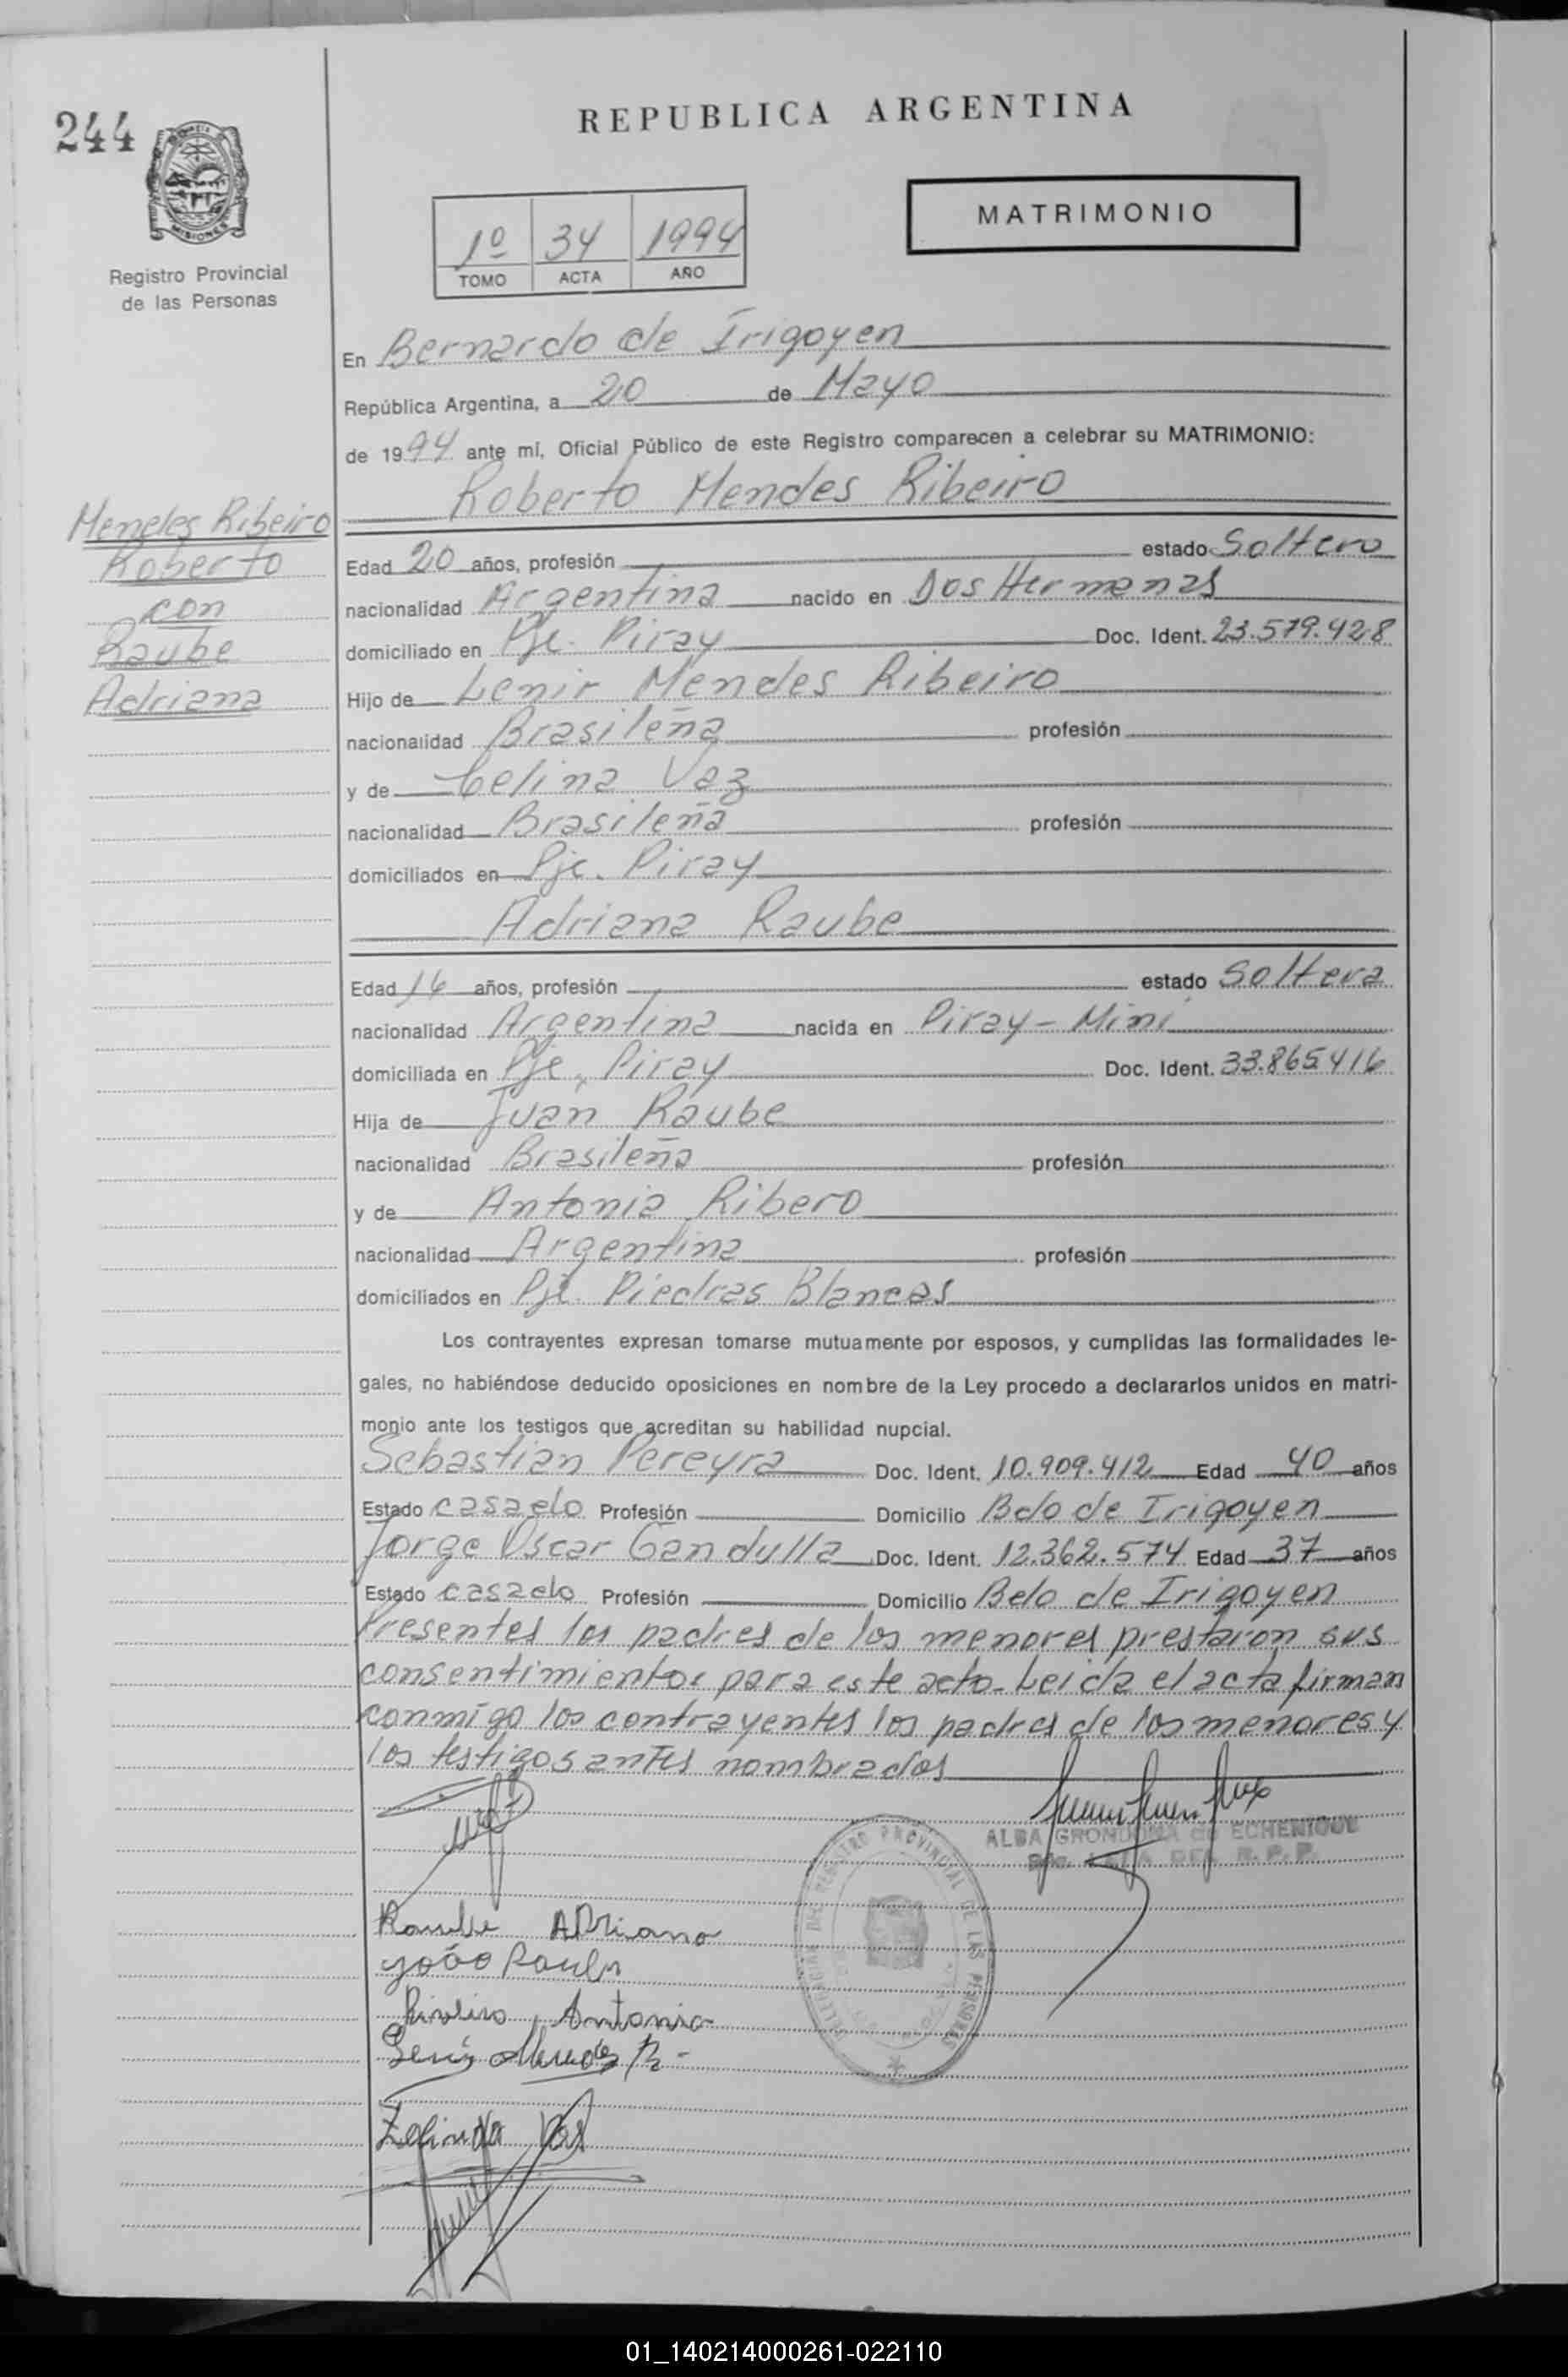 244
REPUBLICA ARGENTINA
MISIONES
Registro Provincial
de las Personas
1º 34 1994
TOMO ACTA AÑO
MATRIMONIO
En Bernardo de Irigoyen
República Argentina, a 20 de Mayo
de 1994 ante mi, Oficial Público de este Registro comparecen a celebrar su MATRIMONIO:
Roberto Mendes Ribeiro
Mendes Ribeiro
Roberto
con
Raube
Adriana
Edad 20 años, profesión estado Soltero
nacionalidad Argentina nacido en Dos Hermanas
domiciliado en Pje. Piray Doc. Ident. 23.579.428
Hijo de Lenir Mendes Ribeiro
nacionalidad Brasileña profesión
y de Celina Vaz
nacionalidad Brasileña profesión
domiciliados en Pje. Piray
Adriana Raube
Edad 16 años, profesión estado Soltera
nacionalidad Argentina nacida en Piray-Mini
domiciliada en Pje. Piray Doc. Ident. 33.865.416
Hija de Juan Raube
nacionalidad Brasileña profesión
y de Antonia Ribero
nacionalidad Argentina profesión
domiciliados en Pje. Piedras Blancas
Los contrayentes expresan tomarse mutuamente por esposos, y cumplidas las formalidades le-
gales, no habiéndose deducido oposiciones en nombre de la Ley procedo a declararlos unidos en matri-
monio ante los testigos que acreditan su habilidad nupcial.
Sebastian Pereyra Doc. Ident. 10.909.412 Edad 40 años
Estado casado Profesión Domicilio Bdo de Irigoyen
Jorge Oscar Gandulla Doc. Ident. 12.362.574 Edad 37 años
Estado casado Profesión Domicilio Bdo de Irigoyen
Presentes los padres de los menores prestaron sus
consentimientos para este acto. Leida el acta firman
conmigo los contrayentes los padres de los menores y
los testigos antes nombrados
ALBA GRONDONA de ECHENIQUE
R. P. P.
DELEGACION DEL REGISTRO PROVINCIAL DE LAS PERSONAS
Raube Adriana
João Raube
Ribeiro Antonia
Lenir Mendes R.-
Zelinda Vas
01_140214000261-022110